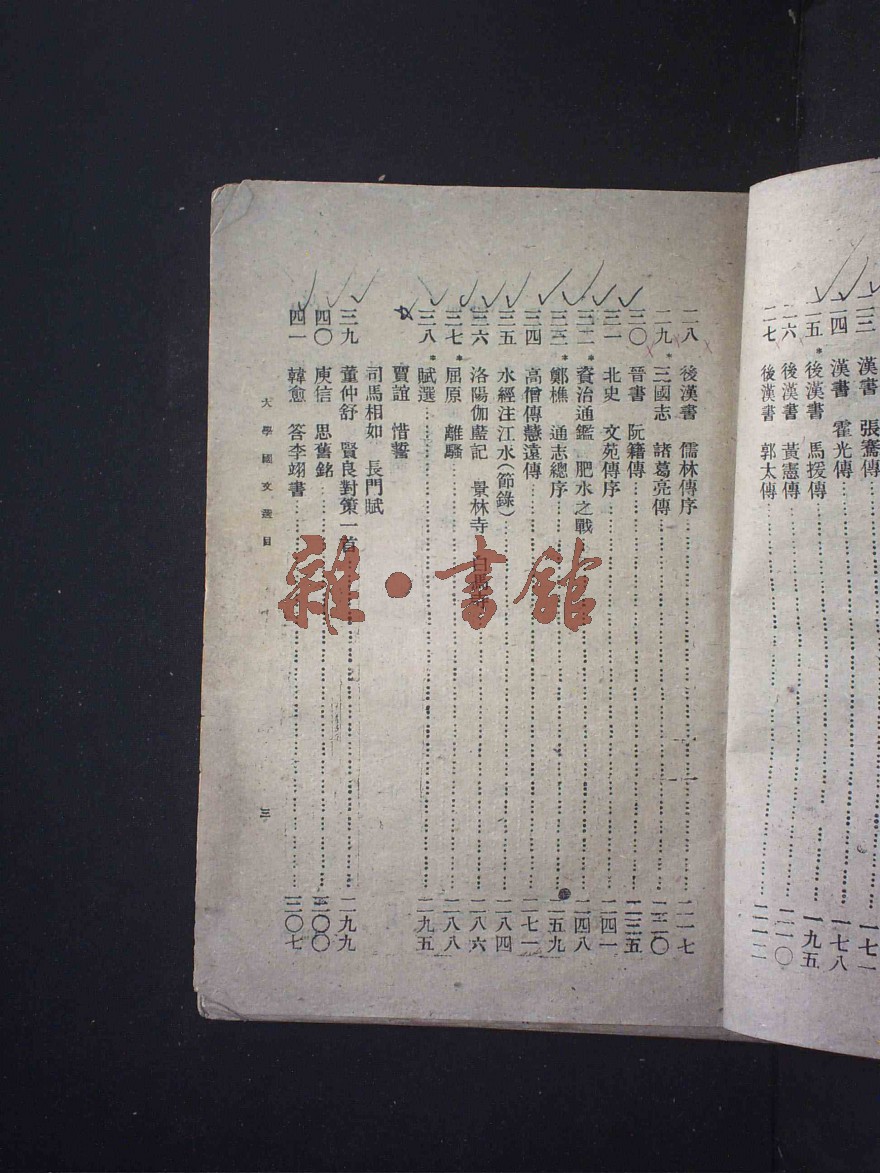 漢書 張騫傳……一七一
二四 漢書 霍光傳……一七八
二五 *後漢書 馬援傳……一九五
二六 後漢書 黃憲傳……二一〇
二七 後漢書 郭太傳……二一二
二八 後漢書 儒林傳序……二一七
二九 *三國志 諸葛亮傳……二二〇
三〇 晉書 阮籍傳……二三五
三一 北史 文苑傳序……二四一
三二 *資治通鑑 肥水之戰……二四八
三三 *鄭樵 通志總序……二五九
三四 高僧傳慧遠傳……二七一
三五 水經注江水(節錄)……二八四
三六 洛陽伽藍記 景林寺 白馬寺……二八六
三七 *屈原 離騷……二八八
三八 *賦選……二九五
賈誼 惜誓
司馬相如 長門賦
三九 董仲舒 賢良對策一首……二九九
四〇 庾信 思舊銘……三〇〇
四一 韓愈 答李翊書……三〇七
大學國文選目
三
雜·書館